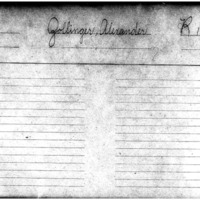 Zollinger, Alexander R